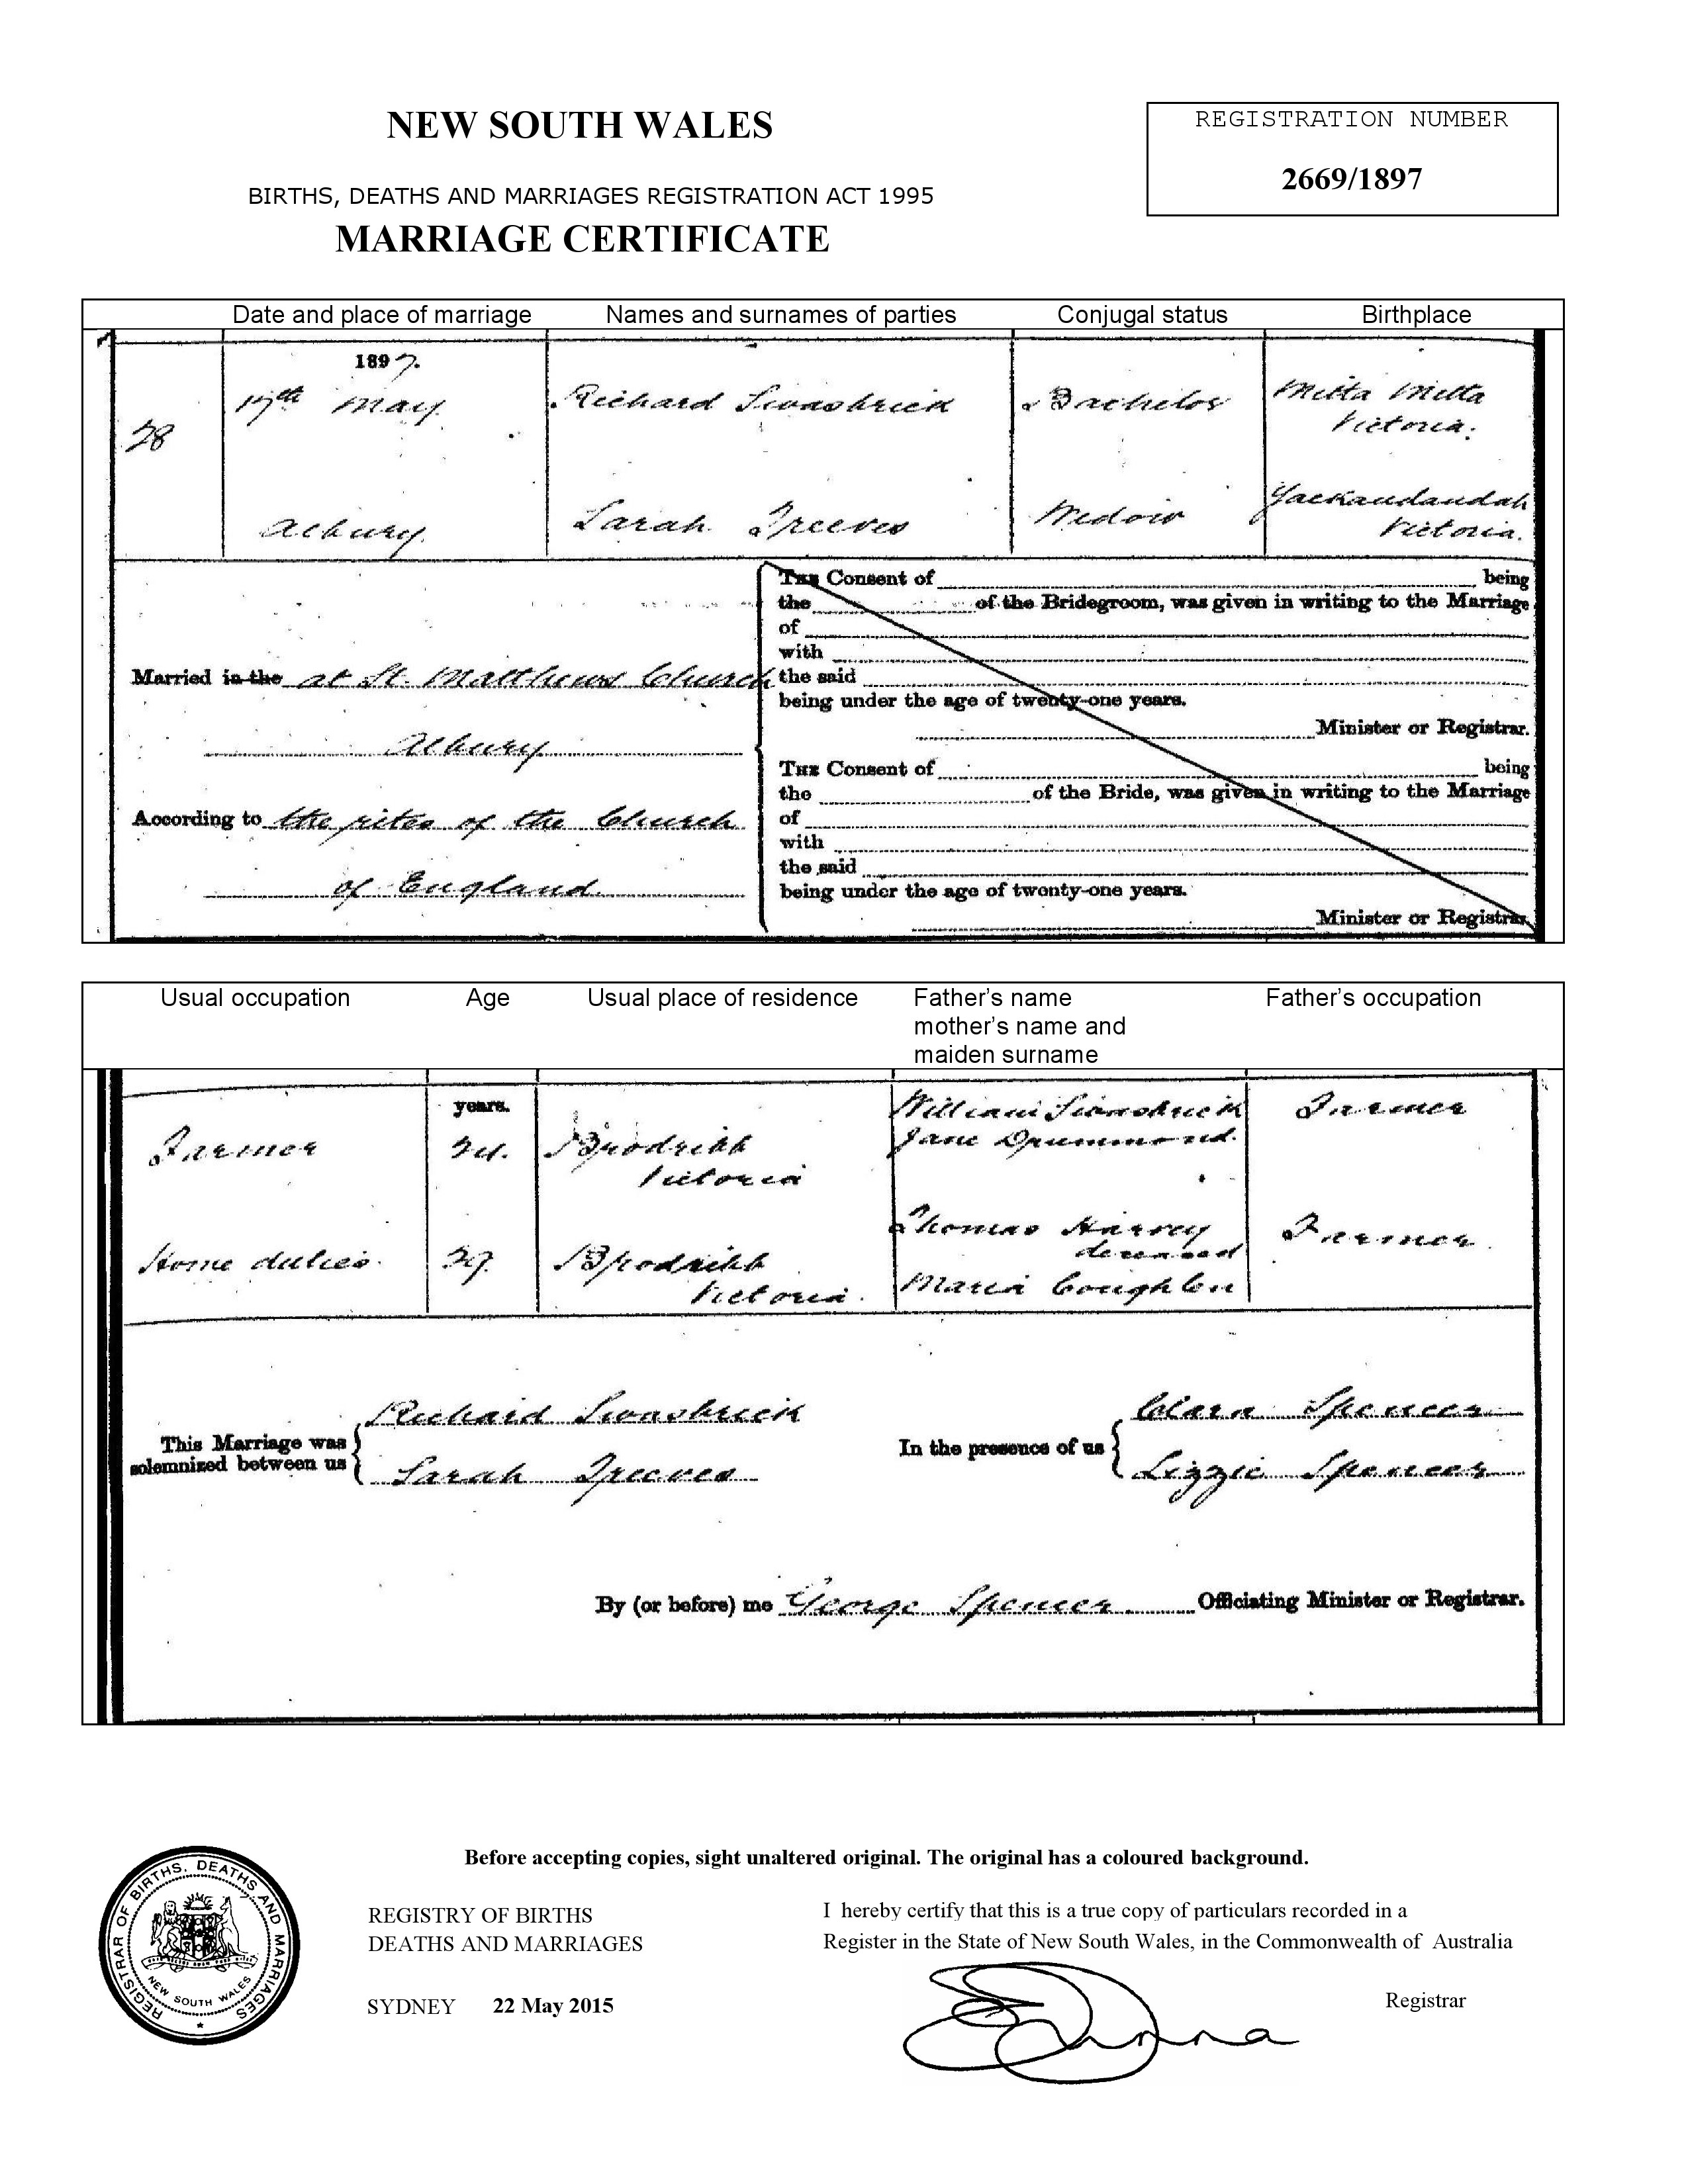 NEW SOUTH WALES
REGISTRATION NUMBER
2669/1897
BIRTHS, DEATHS AND MARRIAGES REGISTRATION ACT 1995
MARRIAGE CERTIFICATE
Date and place of marriage Names and surnames of parties Conjugal status Birthplace
1897.
28 17th May. Richard Swasbrick Bachelor Mitta Mitta
Victoria.
Albury. Sarah Treeves Widow Yackandandah
Victoria.
Married in the at St. Matthews Church
Albury
According to the rites of the Church
of England
THE Consent of being
the of the Bridegroom, was given in writing to the Marriage
of
with
the said
being under the age of twenty-one years.
Minister or Registrar.
THE Consent of being
the of the Bride, was given in writing to the Marriage
of
with
the said
being under the age of twenty-one years.
Minister or Registrar.
Usual occupation Age Usual place of residence Father's name Father's occupation
mother's name and
maiden surname
years.
William Swasbrick Farmer
Farmer Brodribb Jane Drummond.
Victoria
Thomas Harvey Farmer
deceased
Home duties. 29. Brodribb
Victoria. Maria Coughlen
Richard Swasbrick
Sarah Treeves
This Marriage was
solemnized between us
In the presence of us
Clara Spencer
Lizzie Spencer
By (or before) me George Spencer Officiating Minister or Registrar.
Before accepting copies, sight unaltered original. The original has a coloured background.
REGISTRAR OF BIRTHS, DEATHS AND MARRIAGES
NEW SOUTH WALES
REGISTRY OF BIRTHS
DEATHS AND MARRIAGES
SYDNEY 22 May 2015
I hereby certify that this is a true copy of particulars recorded in a
Register in the State of New South Wales, in the Commonwealth of Australia
Registrar